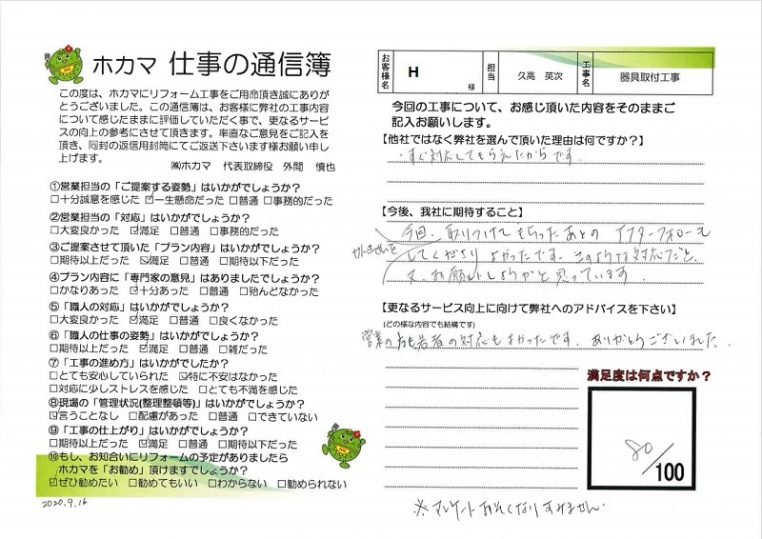 ホカマ 仕事の通信簿
この度は、ホカマにリフォーム工事をご用命頂き誠にありが
とうございました。この通信簿は、お客様に弊社の工事内容
について感じたままに評価していただく事で、更なるサービ
スの向上の参考にさせて頂きます。率直なご意見をご記入を
頂き、同封の返信用封筒にてご返送下さいます様お願い申し
上げます。
㈱ホカマ 代表取締役 外間 慎也
①営業担当の「ご提案する姿勢」はいかがでしょうか?
□十分誠意を感じた ☑一生懸命だった □普通 □事務的だった
②営業担当の「対応」はいかがでしょうか?
□大変良かった ☑満足 □普通 □事務的だった
③ご提案させて頂いた「プラン内容」はいかがでしょうか?
□期待以上だった ☑満足 □普通 □期待以下だった
④プラン内容に「専門家の意見」はありましたでしょうか?
□かなりあった ☑十分あった □普通 □殆んどなかった
⑤「職人の対応」はいかがでしょうか?
□大変良かった ☑満足 □普通 □良くなかった
⑥「職人の仕事の姿勢」はいかがでしょうか?
□期待以上だった ☑満足 □普通 □雑だった
⑦「工事の進め方」はいかがでしたか?
□とても安心していられた ☑特に不安はなかった
□対応に少しストレスを感じた □とても不満を感じた
⑧現場の「管理状況(整理整頓等)」はいかがでしょうか?
☑言うことなし □配慮があった □普通 □できていない
⑨「工事の仕上がり」はいかがでしょうか?
□期待以上だった ☑満足 □普通 □期待以下だった
⑩もし、お知合いにリフォームの予定がありましたら
ホカマを「お勧め」頂けますでしょうか?
☑ぜひ勧めたい □勧めてもいい □わからない □勧められない
2020.9.16
お客様名 H 様 担当 久高 英次 工事名 器具取付工事
今回の工事について、お感じ頂いた内容をそのままご
記入お願いします。
【他社ではなく弊社を選んで頂いた理由は何ですか?】
・すぐ対応してもらえたからです。
【今後、我社に期待すること】
今回、取りつけてもらったあとのアフターフォローも
してくださりよかったです。このような対応だと、
又、お願いしようかと思っています。
【更なるサービス向上に向けて弊社へのアドバイスを下さい】
(どの様な内容でも結構です)
営業の担当者の対応もよかったです。ありがとうございました。
満足度は何点ですか?
80/100
※アンケートおそくなりすみません。